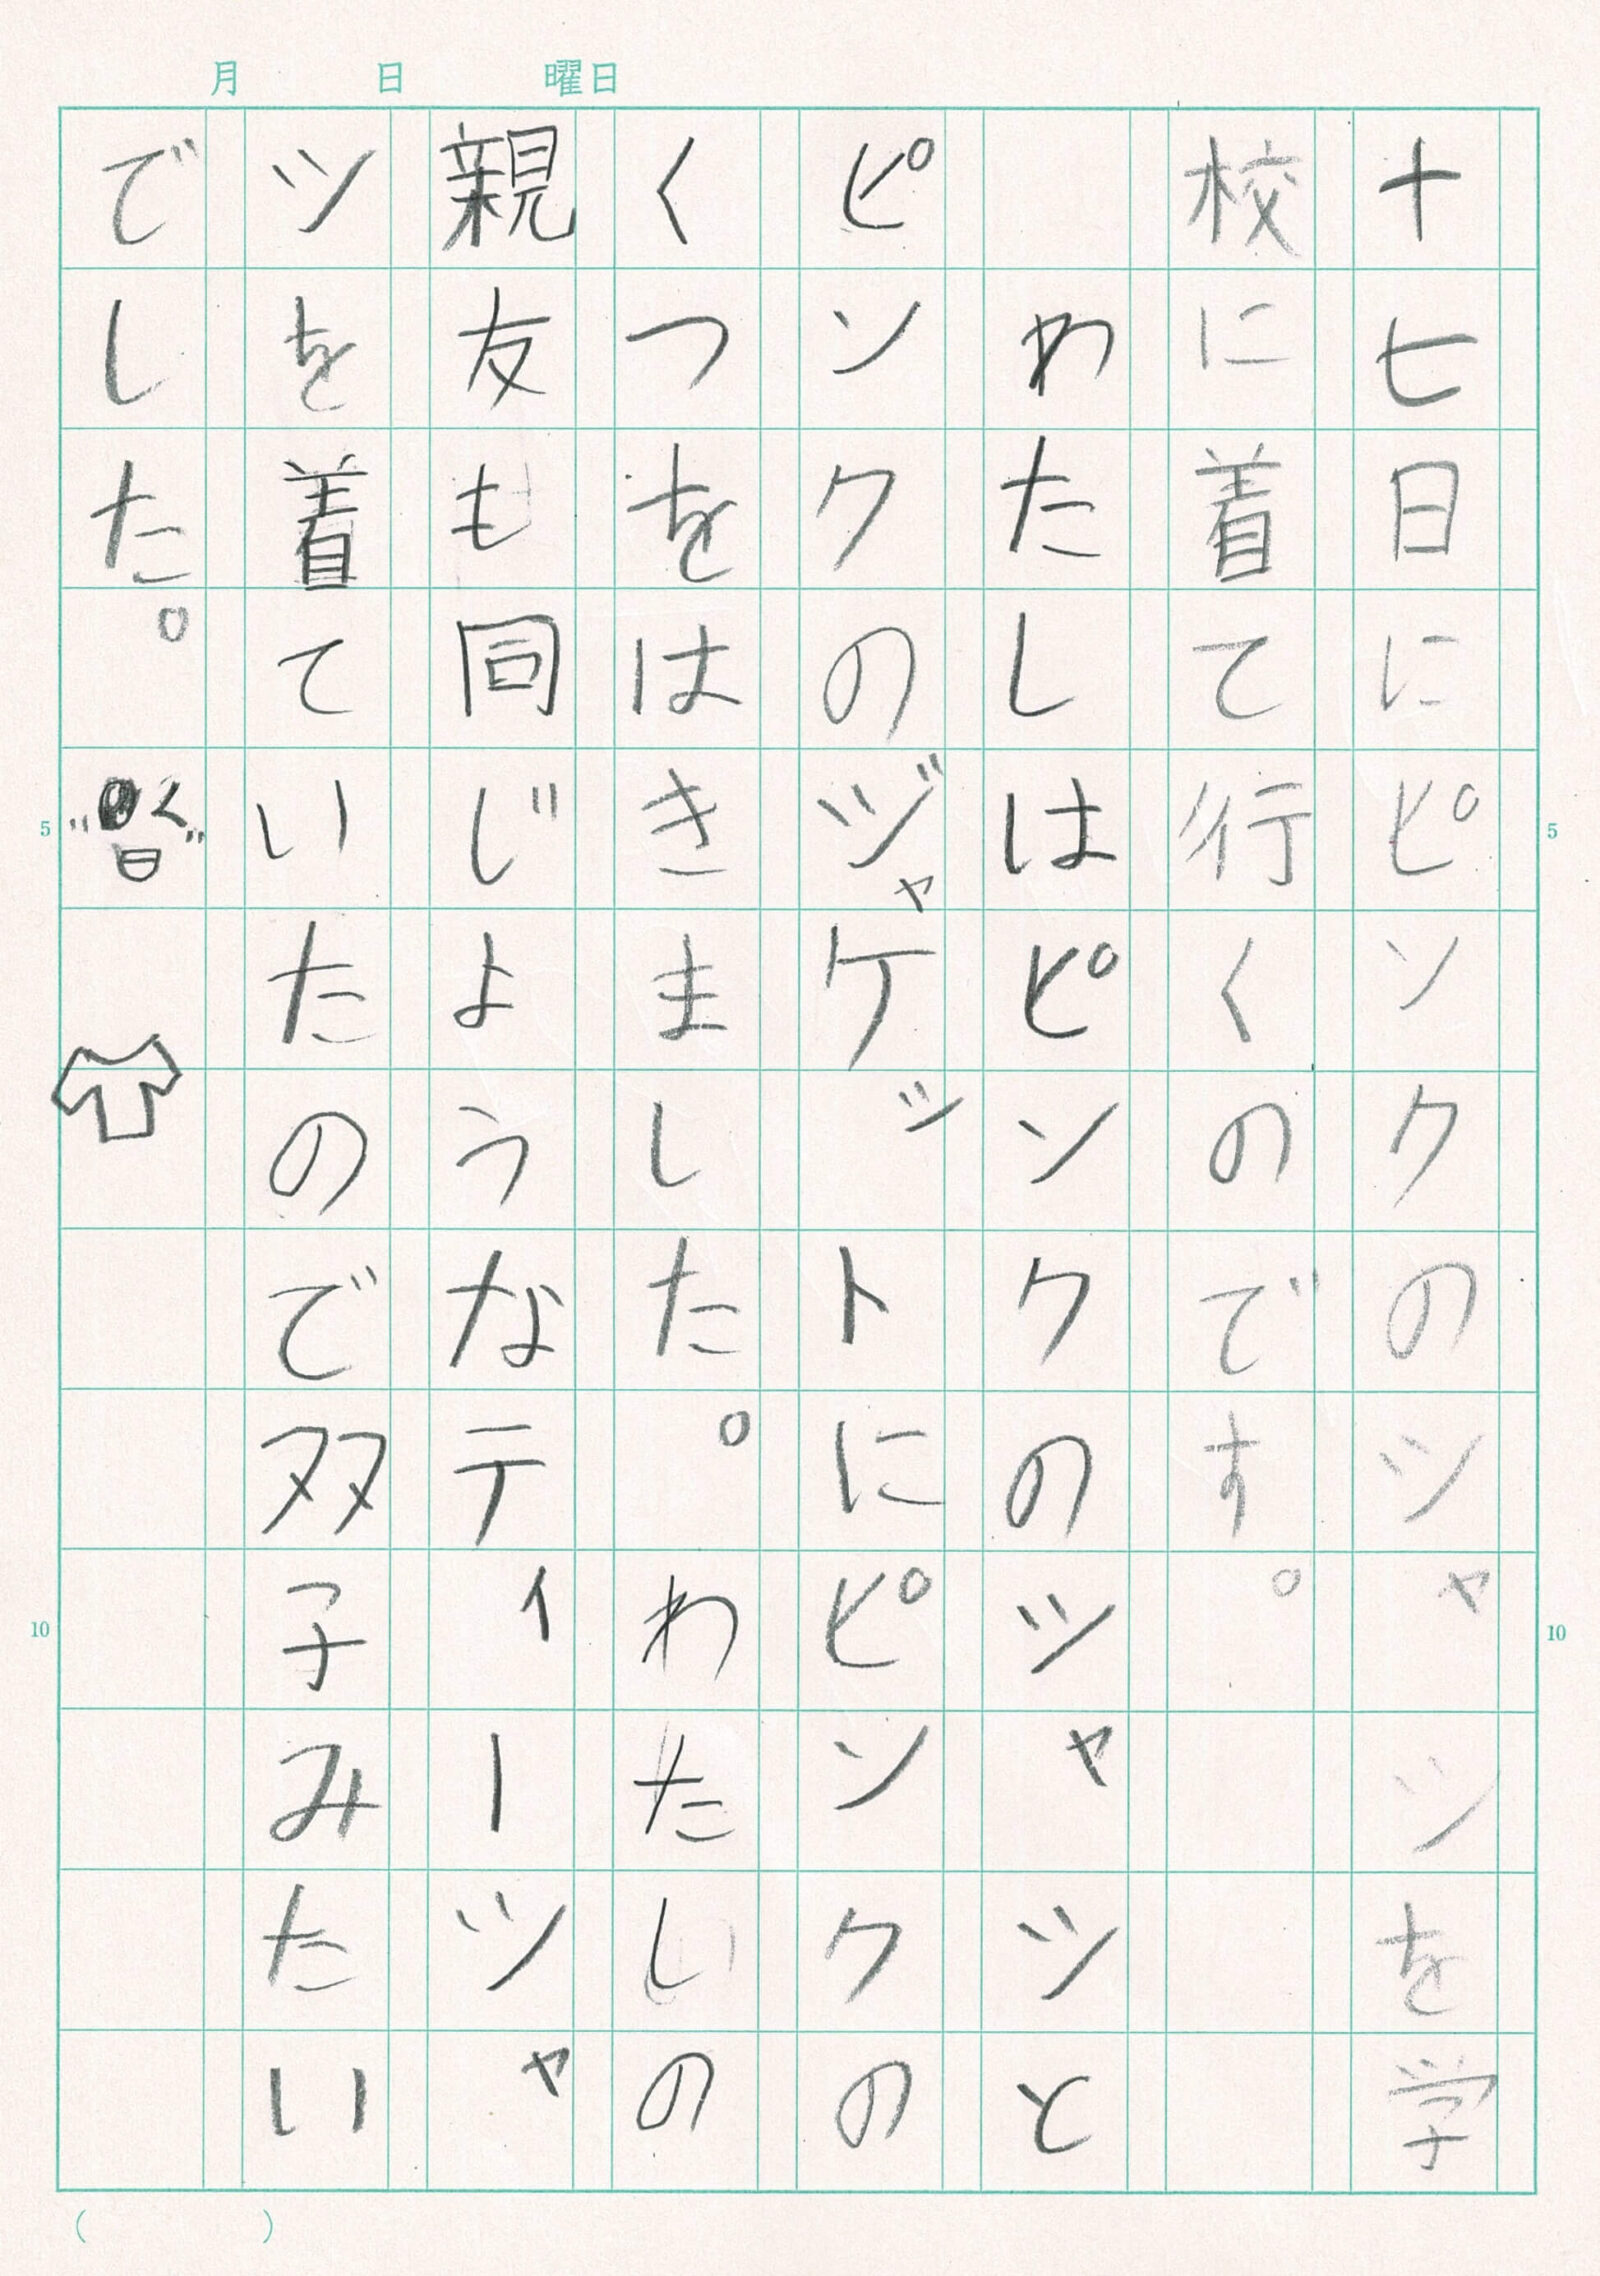 月 日 曜日
十七日にピンクのシャツを学
校に着て行くのです。
わたしはピンクのシャツと
ピンクのジャケットにピンクの
くつをはきました。わたしの
親友も同じようなティーシャ
ツを着ていたので双子みたい
でした。
5
10
5
10
( )